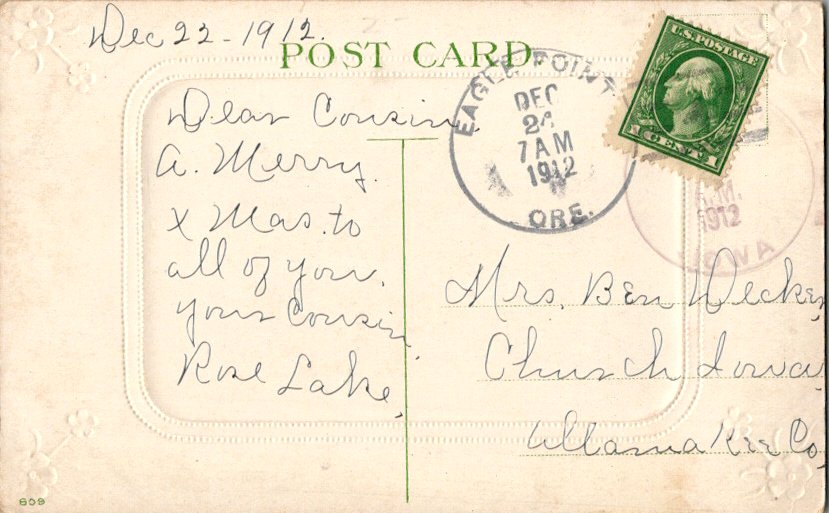 Dec 22 - 1912.
POST CARD.
Dear Cousin,
A. Merry.
X Mas. to
all of you.
your Cousin,
Rose Lake,
EAGLE POINT
DEC
7 AM
1912
ORE.
U.S. POSTAGE
1 CENT 1
1912
IOWA
Mrs. Ben Decker,
Church Iowa,
Allamakee Co,
609